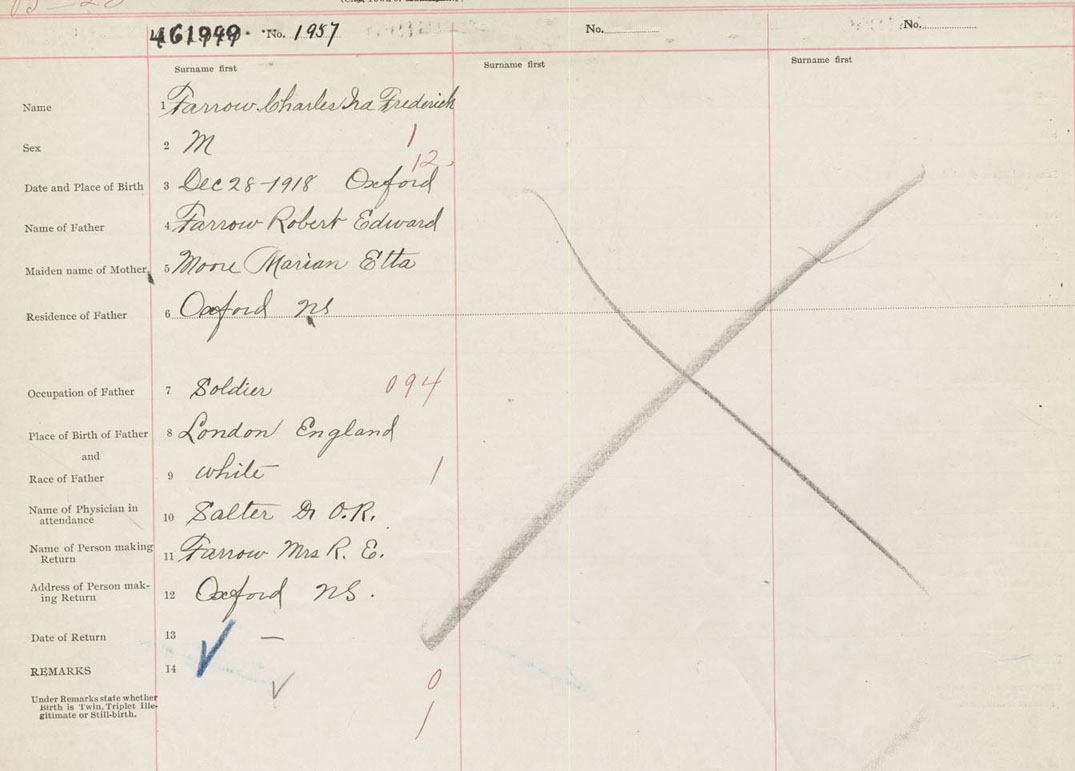 461949 No. 1957 No. No.
Surname first Surname first Surname first
Name 1 Farrow Charles Ira Frederick
Sex 2 M 1
12
Date and Place of Birth 3 Dec 28-1918 Oxford
Name of Father 4 Farrow Robert Edward
Maiden name of Mother 5 Moore Marian Etta
Residence of Father 6 Oxford NS
Occupation of Father 7 Soldier 094
Place of Birth of Father 8 London England
and
Race of Father 9 White 1
Name of Physician in
attendance 10 Salter Dr O.R.
Name of Person making
Return 11 Farrow Mrs R. E.
Address of Person mak-
ing Return 12 Oxford NS.
Date of Return 13 —
REMARKS 14
0
Under Remarks state whether
Birth is Twin, Triplet Ille-
gitimate or Still-birth.
1